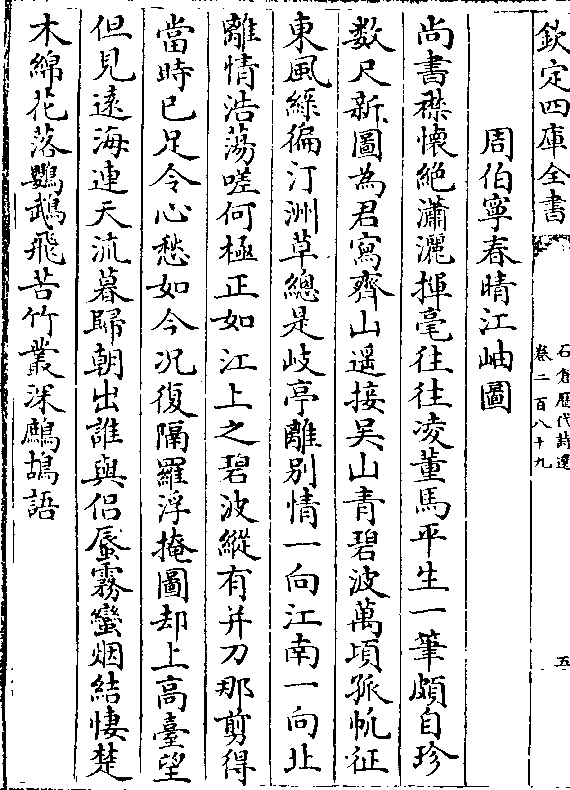 欽定四庫全書
石倉歷代詩選
卷二百八十九
五
周伯寧春晴江岫圖
尚書襟懷絶瀟灑揮毫往往凌董馬平生一筆頗自珍
数尺新圖為君寫齊山遥接吴山青碧波萬頃孤帆征
東風緑徧汀洲草總是岐亭離别情一向江南一向北
離情浩蕩嗟何極正如江上之碧波縱有并刀那剪得
當時已足令心愁如今况復隔羅浮掩圖却上高臺望
但見遠海連天流暮歸朝出誰與侣蜃霧蠻烟結悽楚
木綿花落鸚鵡飛苦竹叢深鷓鴣語